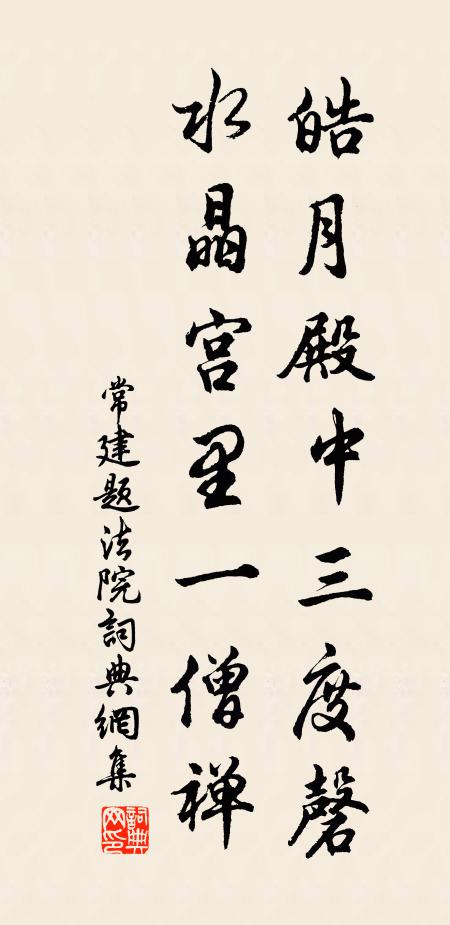 皓月殿中三度磬
水晶宫里一僧禅
常建题法院詞典網集
詞典网印